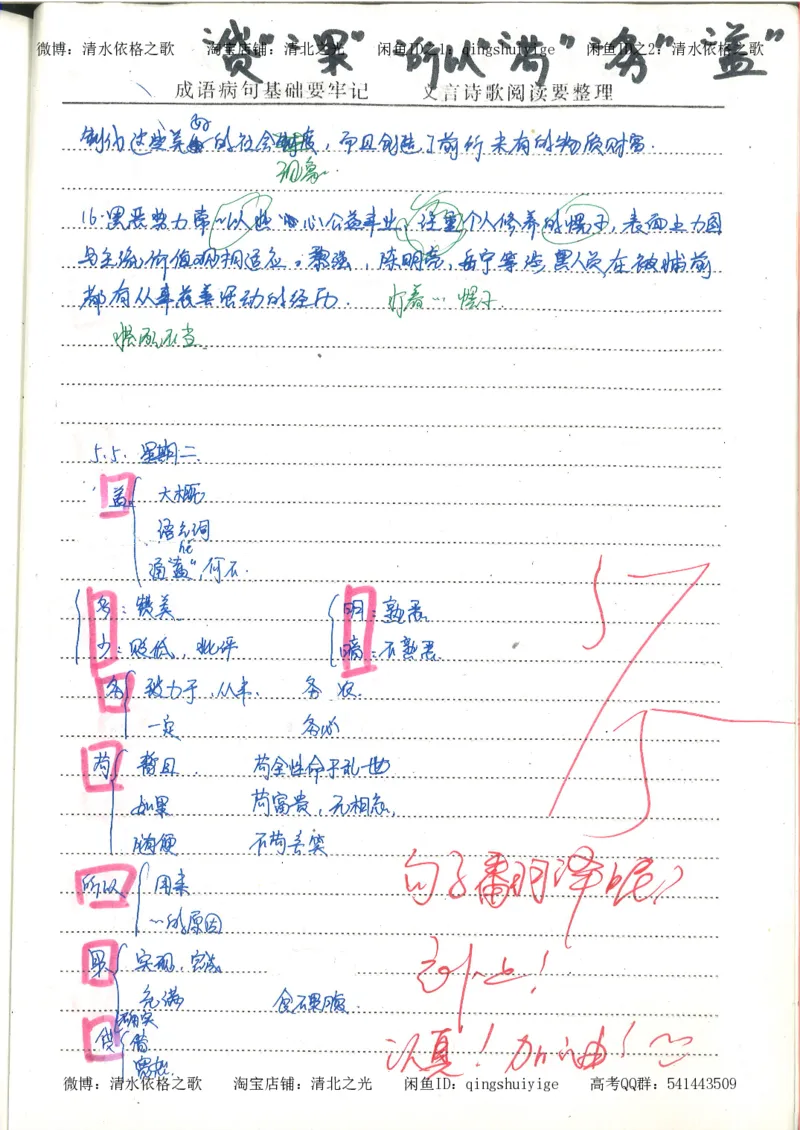 贷"果"所以"苟"务"盖"
微博：清水依格之歌 淘宝店铺：清北之光 闲鱼ID之1：qingshuiyige 闲鱼ID之2：清水依格之歌
成语病句基础要牢记 文言诗歌阅读要整理
的社会制度，而且创造了前所未有的物质财富.
现象.
16.黑恶势力常以热心公益事业、注重个人修养的幌子，表面上力图
与主流价值观相适应。黎强，陈明亮，岳宁等涉黑人员在被捕前
都有从事慈善活动的经历. 打着…幌子.
搭配不当.
5.5. 星期二
盖 大概
语气词
hé
通"盍"，何不.
多：赞美 明：熟悉
少：贬低、批评 暗：不熟悉
务 致力于，从事. 务农.
一定 务必
苟 暂且 苟全性命于乱世
如果 苟富贵，无相忘.
随便 不苟言笑
所以 用来
…的原因
果 实现、完成
充满 食不果腹.
确实
贷 借
宽恕.
5/5
句子翻译呢？
补上！
认真！加油！
微博：清水依格之歌 淘宝店铺：清北之光 闲鱼ID：qingshuiyige 高考QQ群：541443509